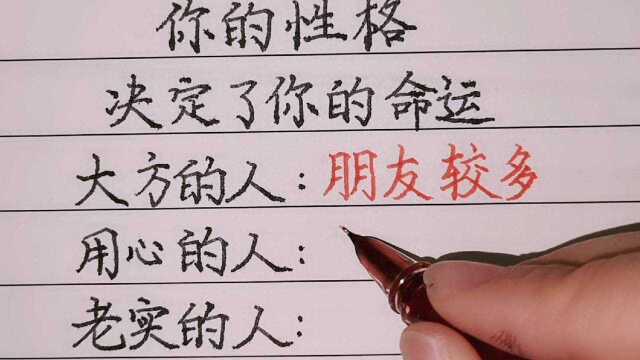 你的性格
决定了你的命运
大方的人：朋友较多
用心的人：
老实的人：